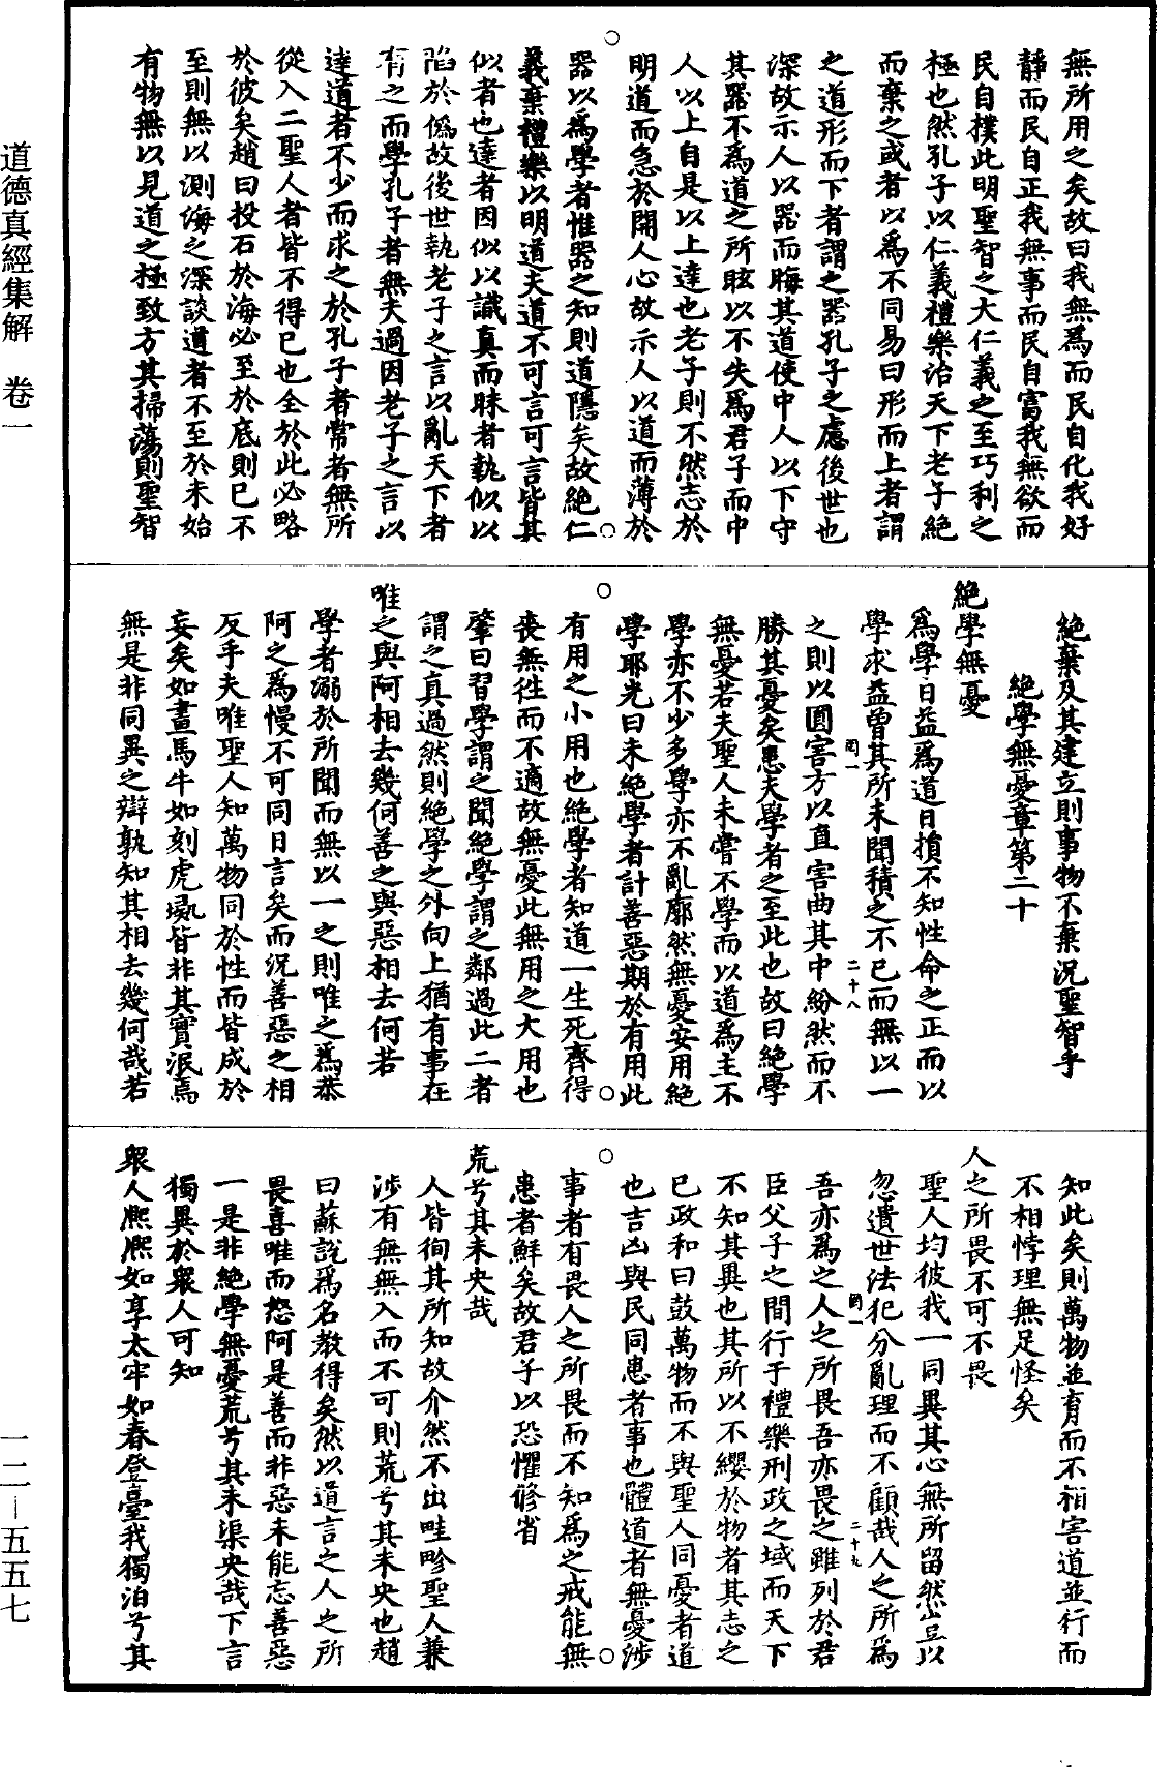 道德真經集解　卷一
一二－五五七
無所用之矣故曰我無爲而民自化我好
靜而民自正我無事而民自富我無欲而
民自樸此明聖智之大仁義之至巧利之
極也然孔子以仁義禮樂治天下老子絕
而棄之或者以爲不同易曰形而上者謂
之道形而下者謂之器孔子之慮後世也
深故示人以器而晦其道使中人以下守
其器不爲道之所眩以不失爲君子而中
人以上自是以上達也老子則不然志於
明道而急於開人心故示人以道而薄於
器以爲學者惟器之知則道隱矣故絕仁
義棄禮樂以明道夫道不可言可言皆其
似者也達者因似以識真而昧者執似以
陷於僞故後世執老子之言以亂天下者
有之而學孔子者無夫過因老子之言以
達道者不少而求之於孔子者常者無所
從入二聖人者皆不得已也全於此必略
於彼矣趙曰投石於海必至於底則已不
至則無以測海之深談道者不至於未始
有物無以見道之極致方其掃蕩則聖智
絕棄及其建立則事物不棄況聖智乎
絕學無憂章第二十
絕學無憂
爲學日益爲道日損不知性命之正而以
學求益曾其所未聞積之不已而無以一
之則以圓害方以直害曲其中紛然而不
勝其憂矣患夫學者之至此也故曰絕學
無憂若夫聖人未嘗不學而以道爲主不
學亦不少多學亦不亂廓然無憂安用絕
學耶光曰未絕學者計善惡期於有用此
有用之小用也絕學者知道一生死齊得
喪無徃而不適故無憂此無用之大用也
肇曰習學謂之聞絕學謂之鄰過此二者
謂之真過然則絕學之外向上猶有事在
唯之與阿相去幾何善之與惡相去何若
學者溺於所聞而無以一之則唯之爲恭
阿之爲慢不可同日言矣而況善惡之相
反乎夫唯聖人知萬物同於性而皆成於
妄矣如畫馬牛如刻虎彘皆非其實泯焉
無是非同異之辯孰知其相去幾何哉若
知此矣則萬物並育而不相害道並行而
不相悖理無足怪矣
人之所畏不可不畏
聖人均彼我一同異其心無所留然豈以
忽遺世法犯分亂理而不顧哉人之所爲
吾亦爲之人之所畏吾亦畏之雖列於君
臣父子之間行于禮樂刑政之域而天下
不知其異也其所以不纓於物者其志之
已政和曰鼓萬物而不與聖人同憂者道
也吉凶與民同患者事也體道者無憂涉
事者有畏人之所畏而不知爲之戒能無
患者鮮矣故君子以恐懼修省
荒兮其未央哉
人皆徇其所知故介然不出畦畛聖人兼
涉有無無入而不可則荒兮其未央也趙
曰蘇說爲名教得矣然以道言之人之所
畏喜唯而怒阿是善而非惡未能忘善惡
一是非絕學無憂荒兮其未渠央哉下言
獨異於衆人可知
衆人熈熈如享太牢如春登臺我獨泊兮其